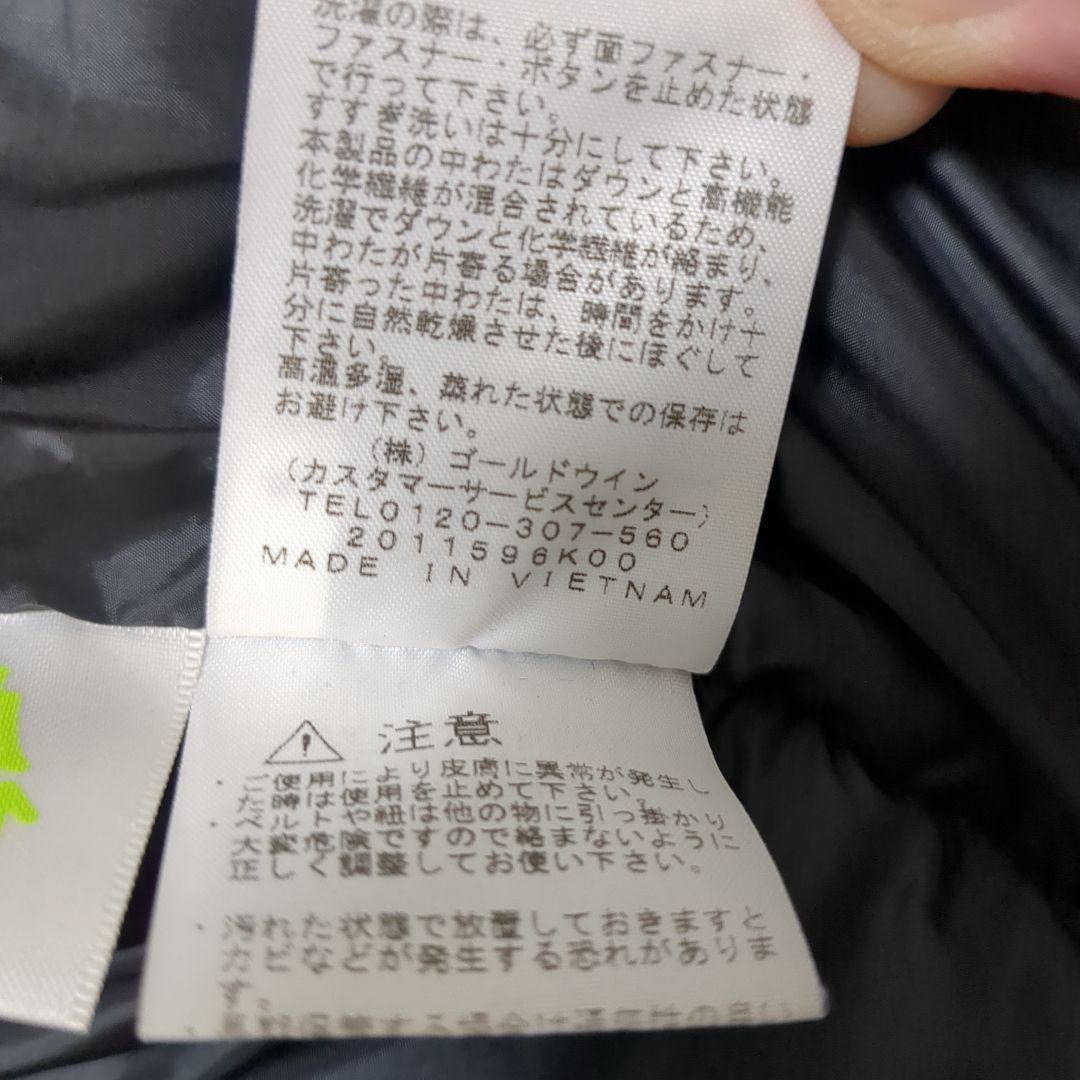 洗濯の際は、必ず面ファスナー・
ファスナー・ボタンを止めた状態
で行って下さい。
すすぎ洗いは十分にして下さい。
本製品の中わたはダウンと高機能
化学繊維が混合されているため、
洗濯でダウンと化学繊維が絡まり、
中わたが片寄る場合があります。
片寄った中わたは、時間をかけ十
分に自然乾燥させた後にほぐして
下さい。
高温多湿、蒸れた状態での保存は
お避け下さい。
(株)ゴールドウイン
(カスタマーサービスセンター)
TEL0120-307-560
2011596K00
MADE IN VIETNAM
注意
・ご使用により皮膚に異常が発生し
た時は使用を止めて下さい。
・ベルトや紐は他の物に引っ掛かり
大変危険ですので絡まないように
正しく調整してお使い下さい。
・汚れた状態で放置しておきますと
カビなどが発生する恐れがありま
す。